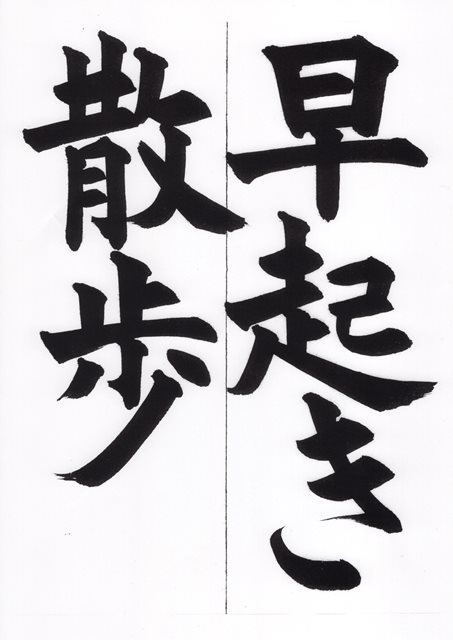 早起き
散歩